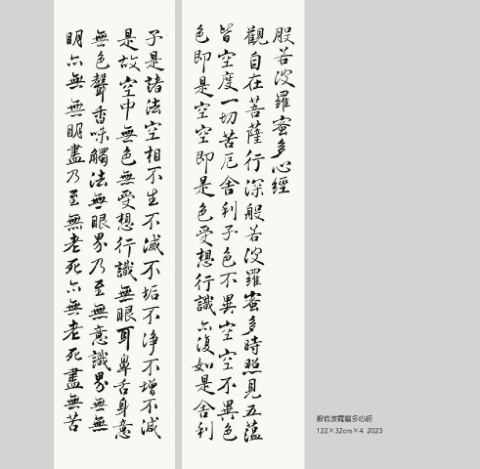 般若波羅蜜多心經
觀自在菩薩行深般若波羅蜜多時照見五蘊
皆空度一切苦厄舍利子色不異空空不異色
色即是空空即是色受想行識亦復如是舍利
子是諸法空相不生不滅不垢不淨不增不減
是故空中無色無受想行識無眼耳鼻舌身意
無色聲香味觸法無眼界乃至無意識界無無
明亦無無明盡乃至無老死亦無老死盡無苦
般若波羅蜜多心經
122×32cm×4 2023